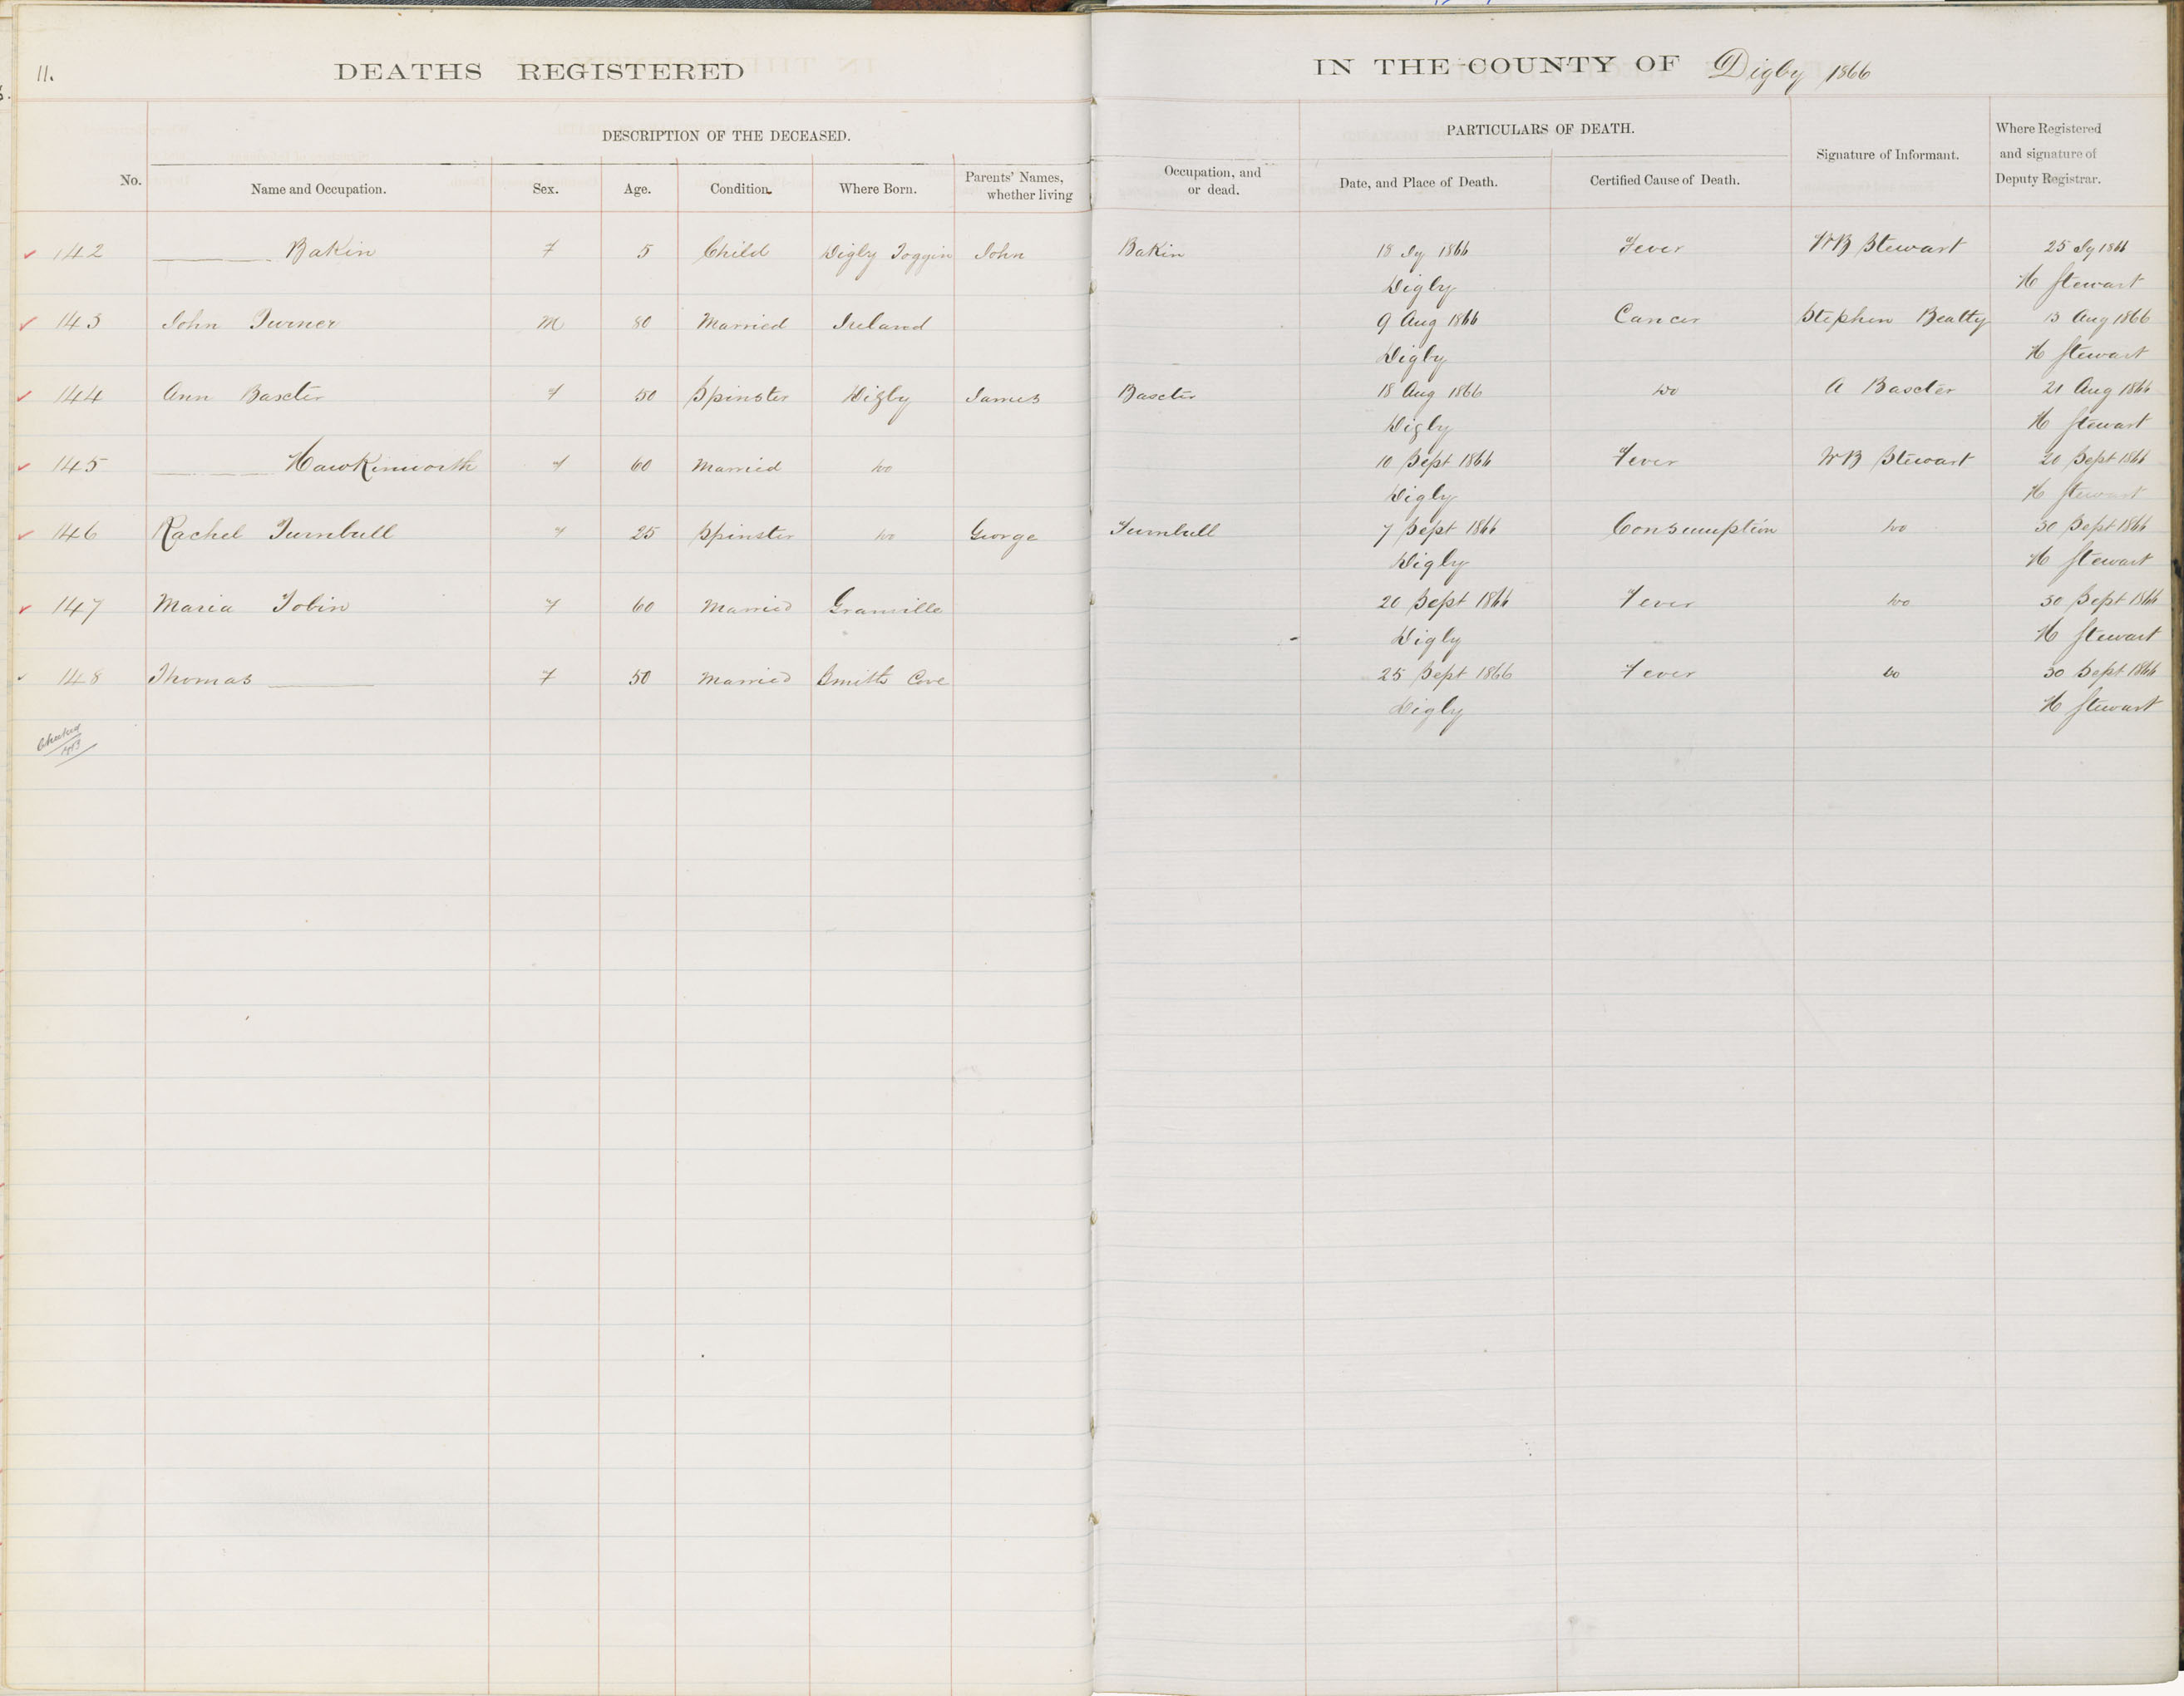 11. DEATHS REGISTERED IN THE COUNTY OF Digby 1866
DESCRIPTION OF THE DECEASED. PARTICULARS OF DEATH.
No. Name and Occupation. Sex. Age. Condition. Where Born. Parents' Names, whether living Occupation, and or dead. Date, and Place of Death. Certified Cause of Death. Signature of Informant. Where Registered and signature of Deputy Registrar.
142 Bakin F 5 Child Digby Joggin John Bakin 18 Jy 1866 Fever WB Stewart 25 Jy 1866
Digby H Stewart
143 John Turner M 80 Married Ireland 9 Aug 1866 Cancer Stephen Beatty 13 Aug 1866
Digby H Stewart
144 Ann Baxcter F 50 Spinster Digby James Baxcter 18 Aug 1866 Do A Baxcter 21 Aug 1866
Digby H Stewart
145 Hawkinworth F 60 Married Do 10 Sept 1866 Fever WB Stewart 20 Sept 1866
Digby H Stewart
146 Rachel Turnbull F 25 Spinster Do George Turnbull 7 Sept 1866 Consumption Do 30 Sept 1866
Digby H Stewart
147 Maria Tobin F 60 Married Granville 20 Sept 1866 Fever Do 30 Sept 1866
Digby H Stewart
148 Thomas F 50 Married Smiths Cove 25 Sept 1866 Fever Do 30 Sept 1866
Digby H Stewart
Checked